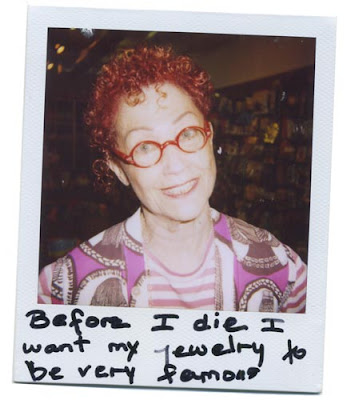 Before I die I
want my jewelry to
be very famous